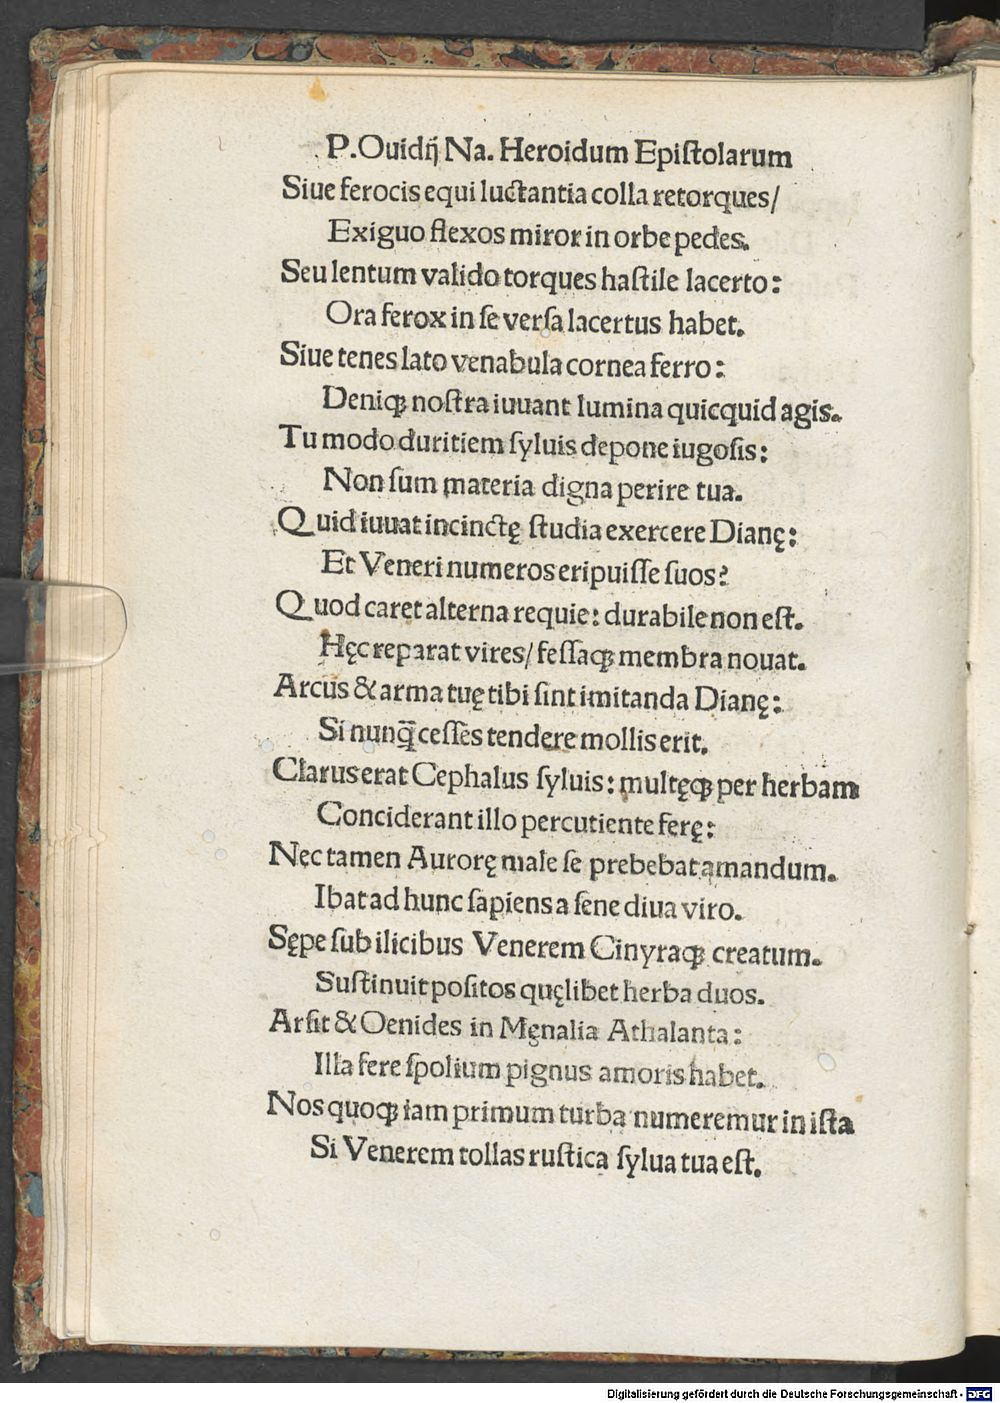 P.Ouidij Na. Heroidum Epiſtolarum
Siue ferocis equi luctantia colla retorques/
Exiguo flexos miror in orbe pedes.
Seu lentum valido torques haſtile lacerto:
Ora ferox in ſe verſa lacertus habet.
Siue tenes lato venabula cornea ferro:
Deniqꝫ noſtra iuuant lumina quicquid agis.
Tu modo duritiem ſyluis depone iugoſis:
Non ſum materia digna perire tua.
Quid iuuat incinctę ſtudia exercere Dianę:
Et Veneri numeros eripuiſſe ſuos?
Quod caret alterna requie: durabile non eſt.
Hęc reparat vires/ feſſaqꝫ membra nouat.
Arcus & arma tuę tibi ſint imitanda Dianę:
Si nunq̃ ceſſes tendere mollis erit.
Clarus erat Cephalus ſyluis: multęqꝫ per herbam
Conciderant illo percutiente ferę:
Nęc tamen Aurorę male ſe prebebat amandum.
Ibat ad hunc ſapiens a ſene diua viro.
Sępe ſub ilicibus Venerem Cinyraqꝫ creatum.
Suſtinuit poſitos quęlibet herba duos.
Arſit & Oenides in Męnalia Athalanta:
Illa fere ſpolium pignus amoris habet.
Nos quoqꝫ iam primum turba numeremur in iſta
Si Venerem tollas ruſtica ſylua tua eſt.
Digitalisierung gefördert durch die Deutsche Forschungsgemeinschaft - DFG